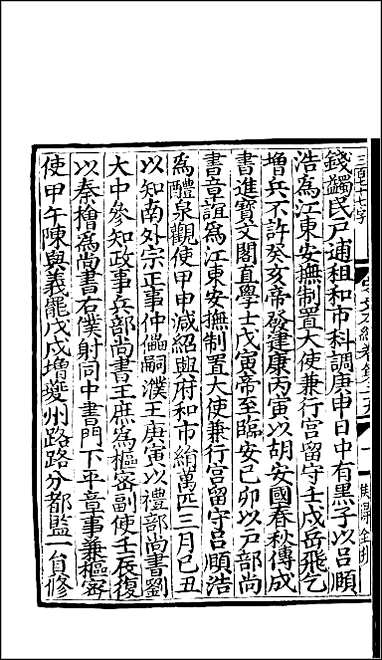 三百七十七字
錢蠲民戶逋租和市科調庚申日中有黑子以呂頤
浩爲江東安撫制置大使兼行宫留守壬戌岳飛乞
增兵不許癸亥帝發建康丙寅以胡安國春秋傳成
書進寶文閣直學士戊寅帝至臨安己卯以戶部尚
書章誼爲江東安撫制置大使兼行宫留守呂頤浩
爲醴泉觀使甲申減紹興府和市絹萬匹三月己丑
以知南外宗正事仲儡嗣濮王庚寅以禮部尚書劉
大中參知政事兵部尚書王庶爲樞密副使壬辰復
以秦檜爲尚書右僕射同中書門下平章事兼樞密
使甲午陳與義罷戊戌增夔州路路分都監一員修